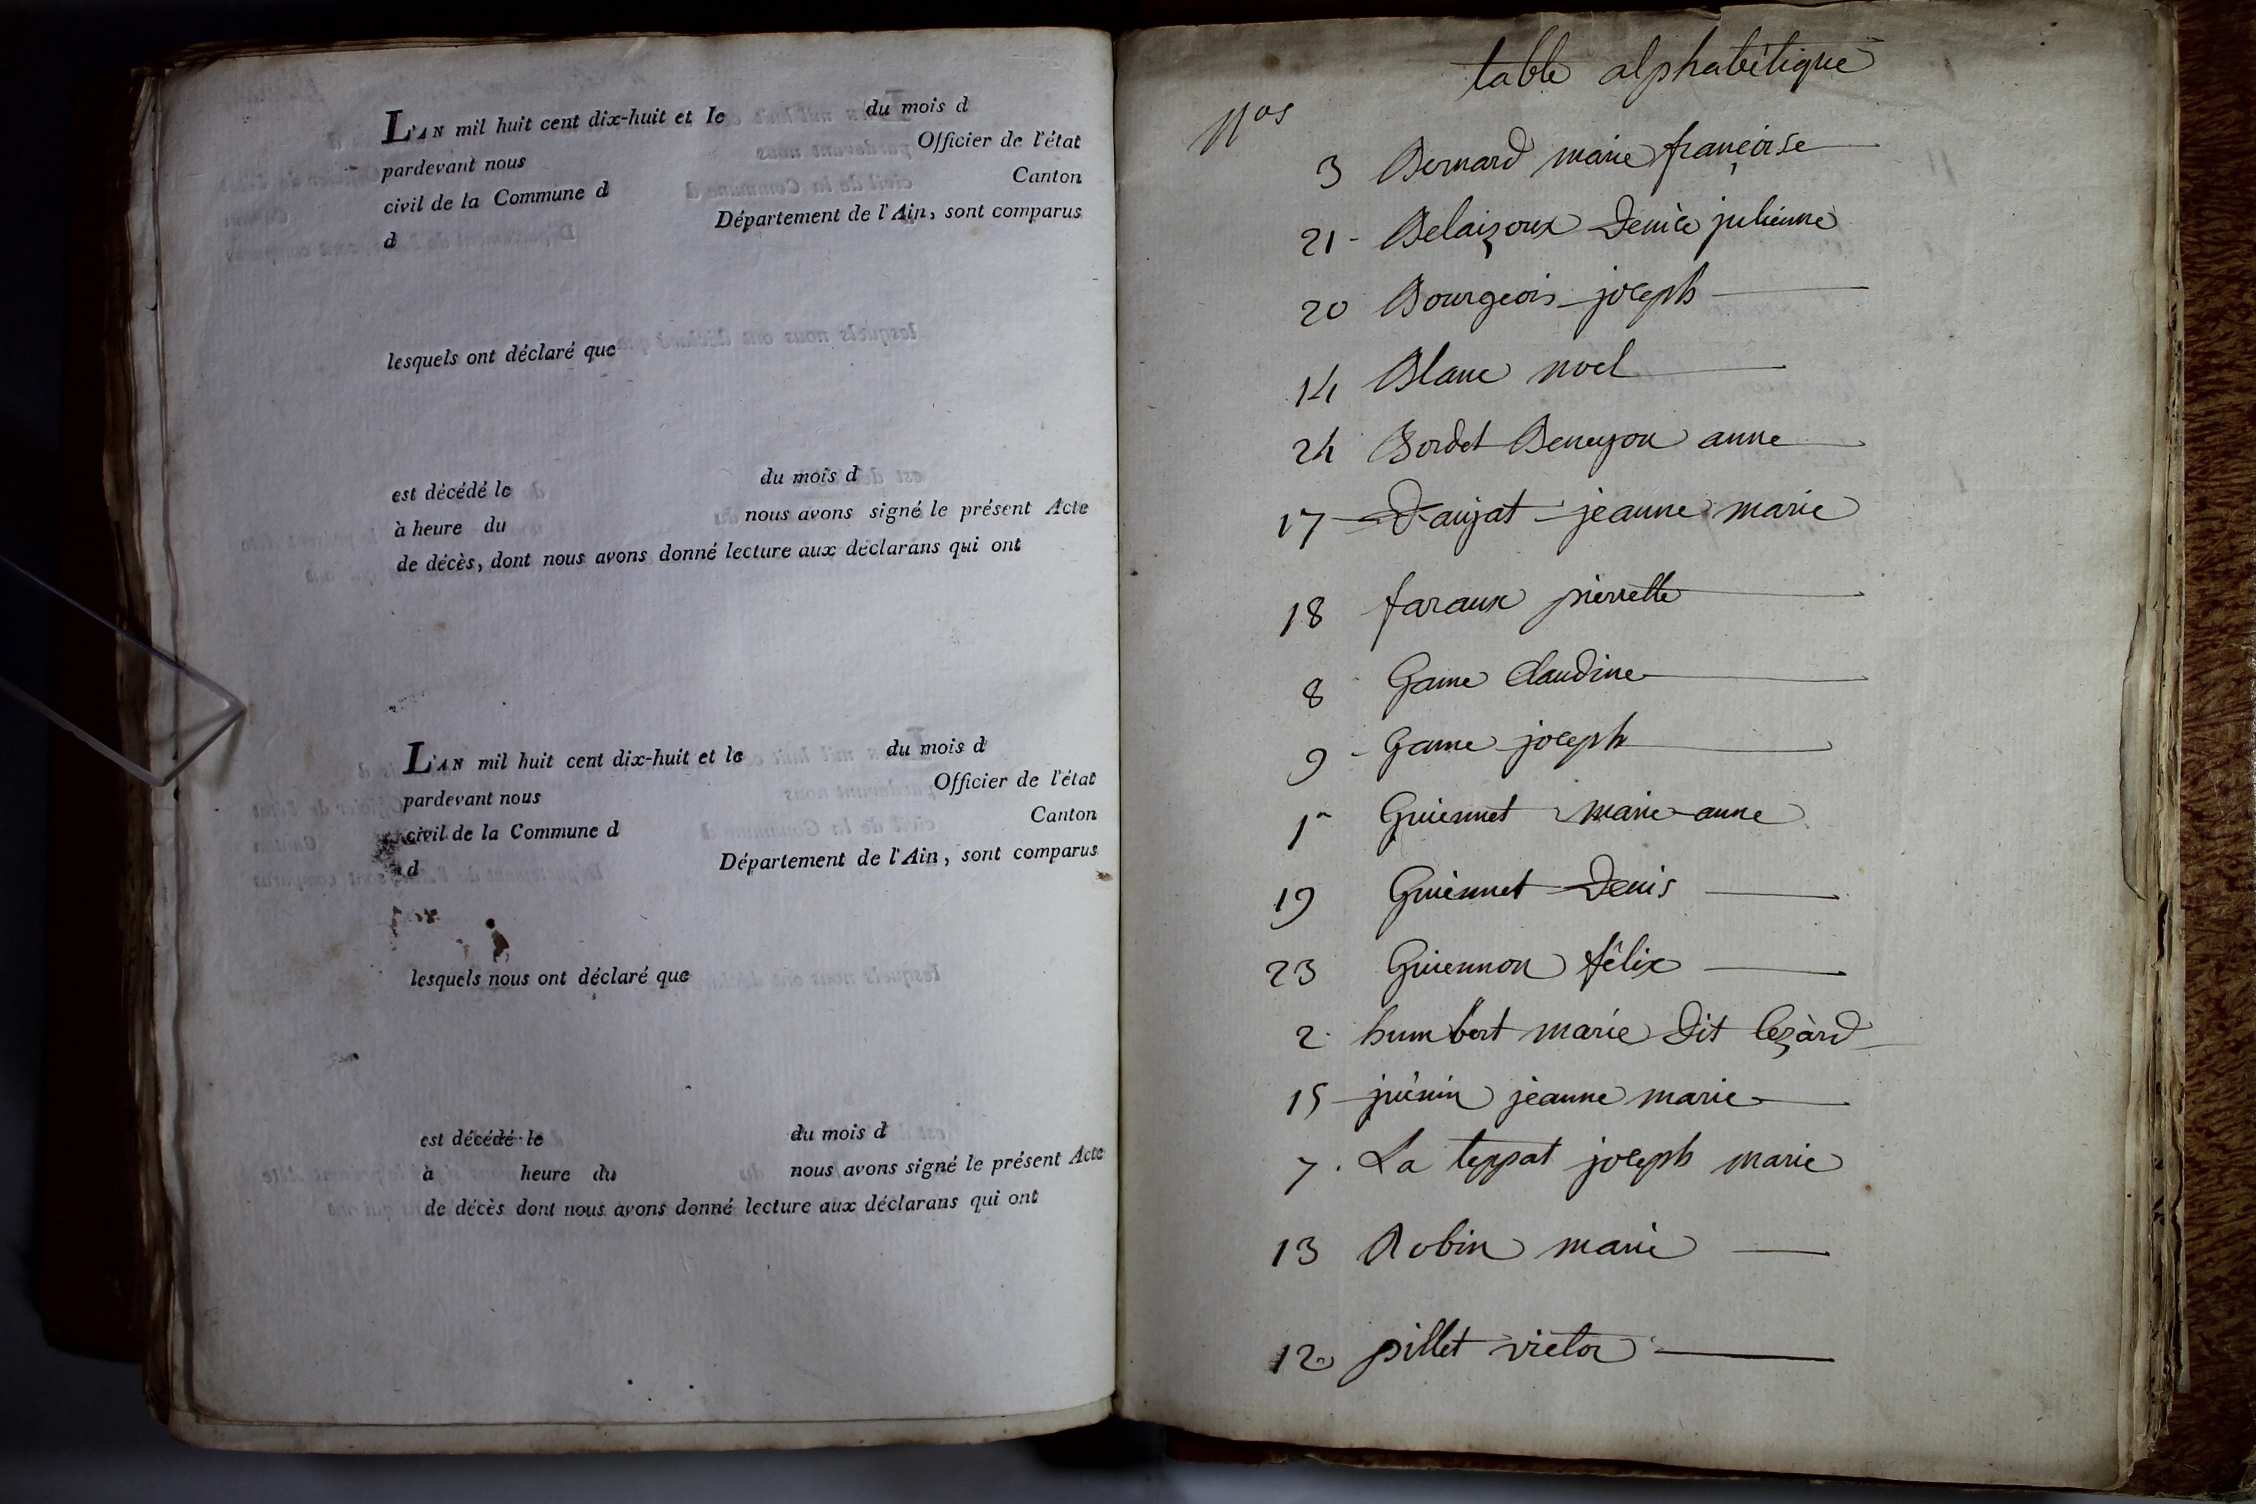 L'AN mil huit cent dix-huit et le du mois d
pardevant nous Officier de l'état
civil de la Commune d Canton
d Département de l'Ain, sont comparus
lesquels ont déclaré que
est décédé le du mois d
à heure du nous avons signé le présent Acte
de décès, dont nous avons donné lecture aux déclarans qui ont
L'AN mil huit cent dix-huit et le du mois d
pardevant nous Officier de l'état
civil de la Commune d Canton
d Département de l'Ain, sont comparus
lesquels nous ont déclaré que
est décédé le du mois d
à heure du nous avons signé le présent Acte
de décès dont nous avons donné lecture aux déclarans qui ont
table alphabétique
Nos
3 Bernard marie françoise
21 - Belaizoux Denice julienne
20 Bourgeois joseph
14 Blanc noel
24 Bordet Beneyton anne
17 Daujat jeanne marie
18 faraux pierrette
8 Game Claudine
9 - Game joseph
1 - Guiennet marie anne
19 Guiennet Denis
23 Guiennon félix
2. humbert marie Dit lezàrd
15 juénin jéanne marie
7. La teppat joseph marie
13 Robin marie
12 pillet victor